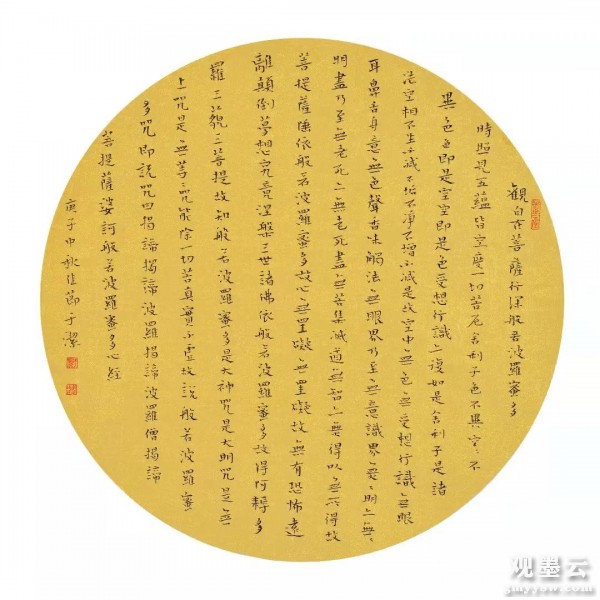 觀自在菩薩行深般若波羅蜜多
時照見五蘊皆空度一切苦厄舍利子色不異空〻不
異色色即是空空即是色受想行識亦復如是舍利子是諸
法空相不生不滅不垢不淨不增不減是故空中無色無受想行識無眼
耳鼻舌身意無色聲香味觸法無眼界乃至無意識界無〻明亦無〻
明盡乃至無老死亦無老死盡無苦集滅道無智亦無得以無所得故
菩提薩埵依般若波羅蜜多故心無罣礙無罣礙故無有恐怖遠
離顛倒夢想究竟涅槃三世諸佛依般若波羅蜜多故得阿耨多
羅三藐三菩提故知般若波羅蜜多是大神咒是大明咒是無
上咒是無等〻咒能除一切苦真實不虛故說般若波羅蜜
多咒即說咒曰揭諦揭諦波羅揭諦波羅僧揭諦
菩提薩婆訶般若波羅蜜多心經
庚子中秋佳節于潔
观墨云